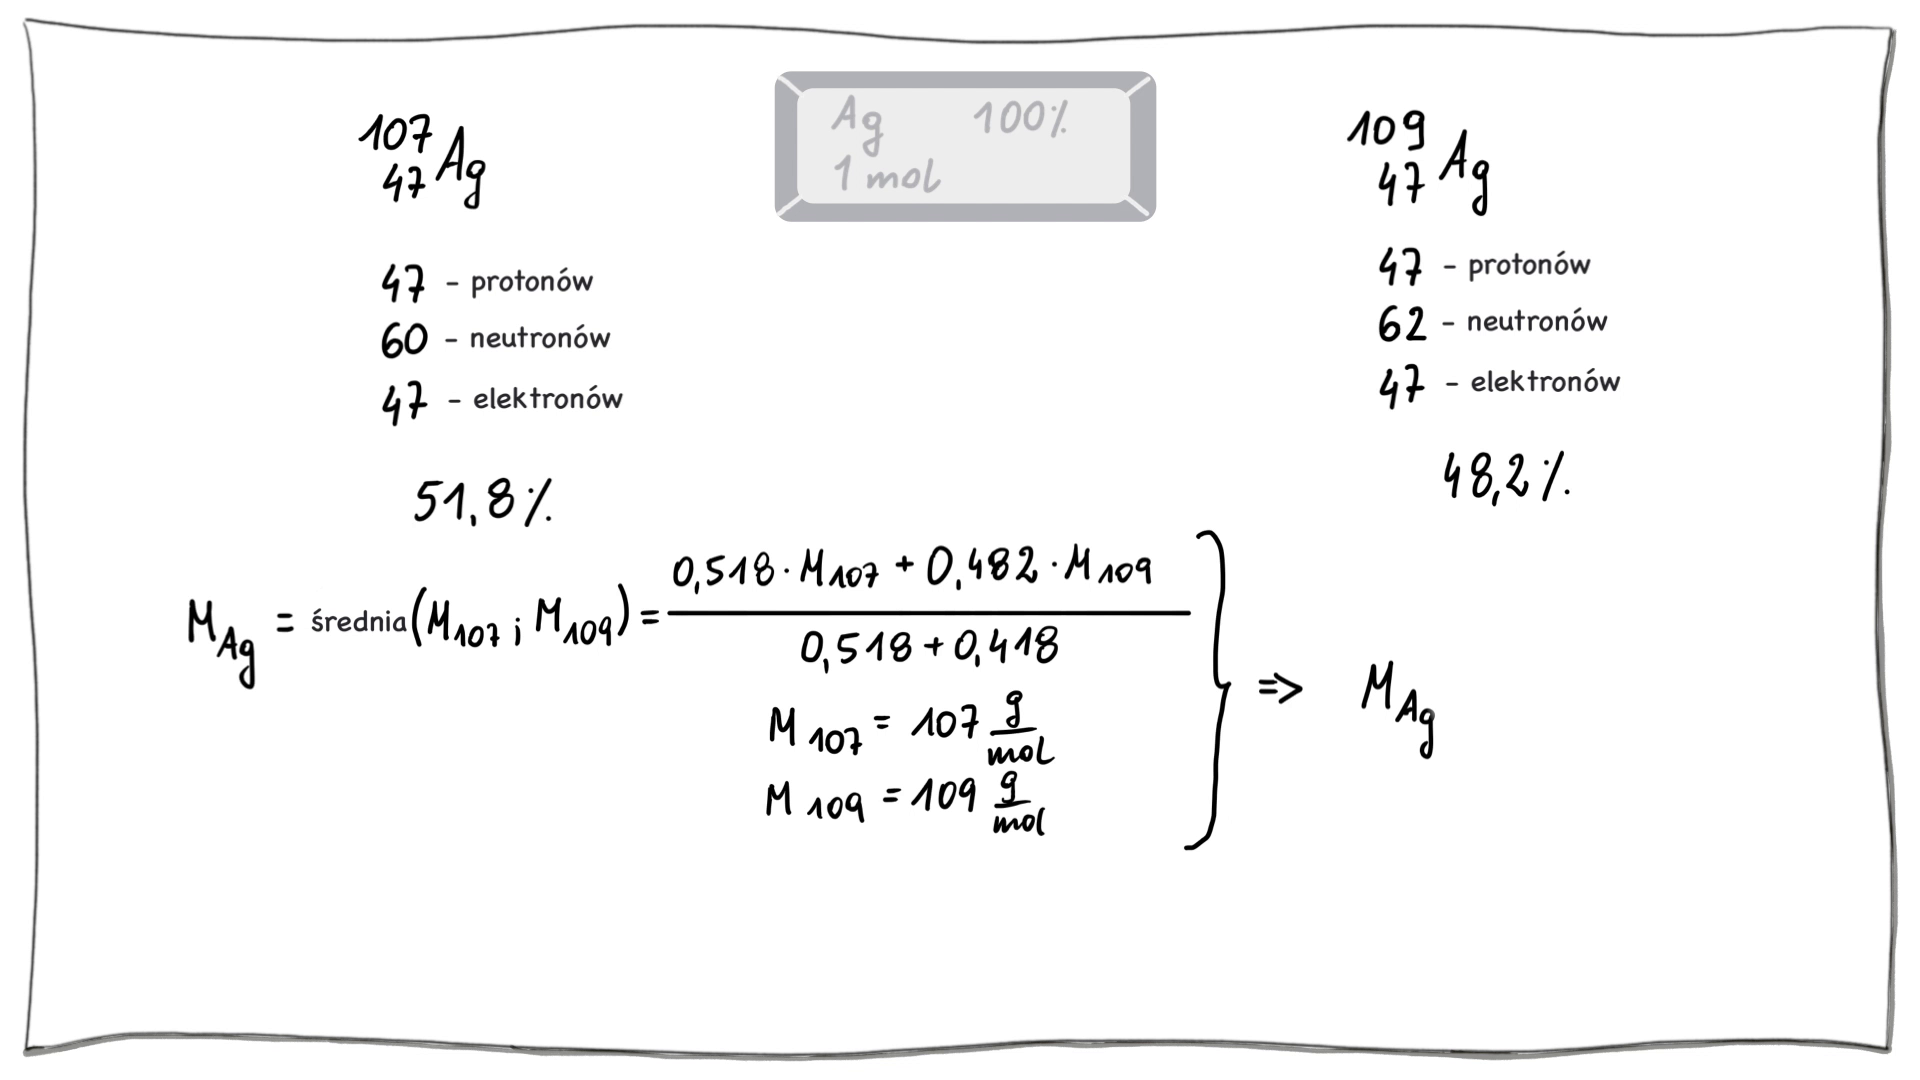 Ag 100%
1 mol
107
47 Ag
47 - protonów
60 - neutronów
47 - elektronów
51,8%
109
47 Ag
47 - protonów
62 - neutronów
47 - elektronów
48,2%
M Ag = średnia (M107 ; M109) = 0,518 · M107 + 0,482 · M109
0,518 + 0,418
M 107 = 107 g/mol
M 109 = 109 g/mol
=> M Ag